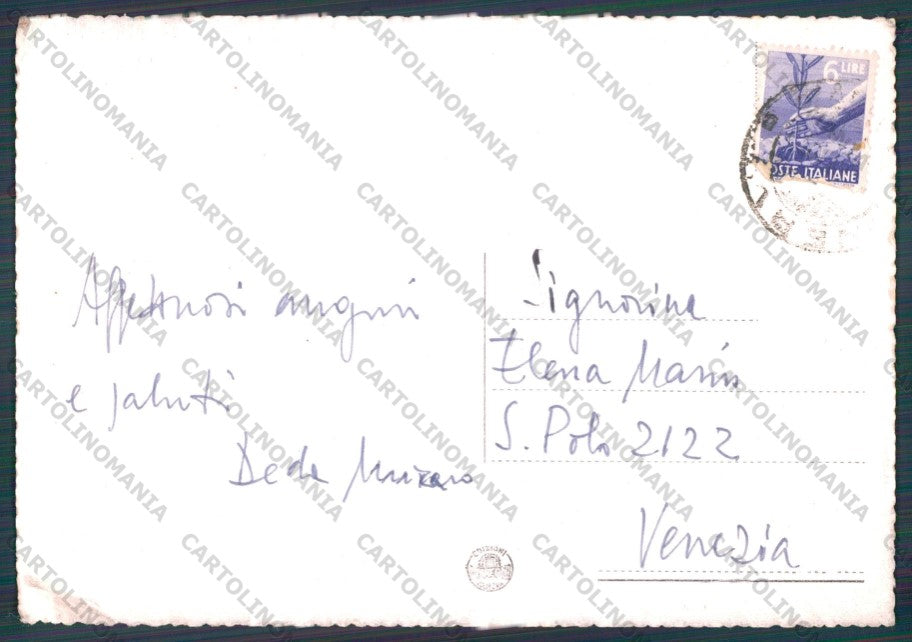 Affettuosi auguri
e saluti
Deda
Signorina
Elena Marin
S. Polo 2122
Venezia
6 LIRE
POSTE ITALIANE
EDIZIONI
CARTOLINOMANIA